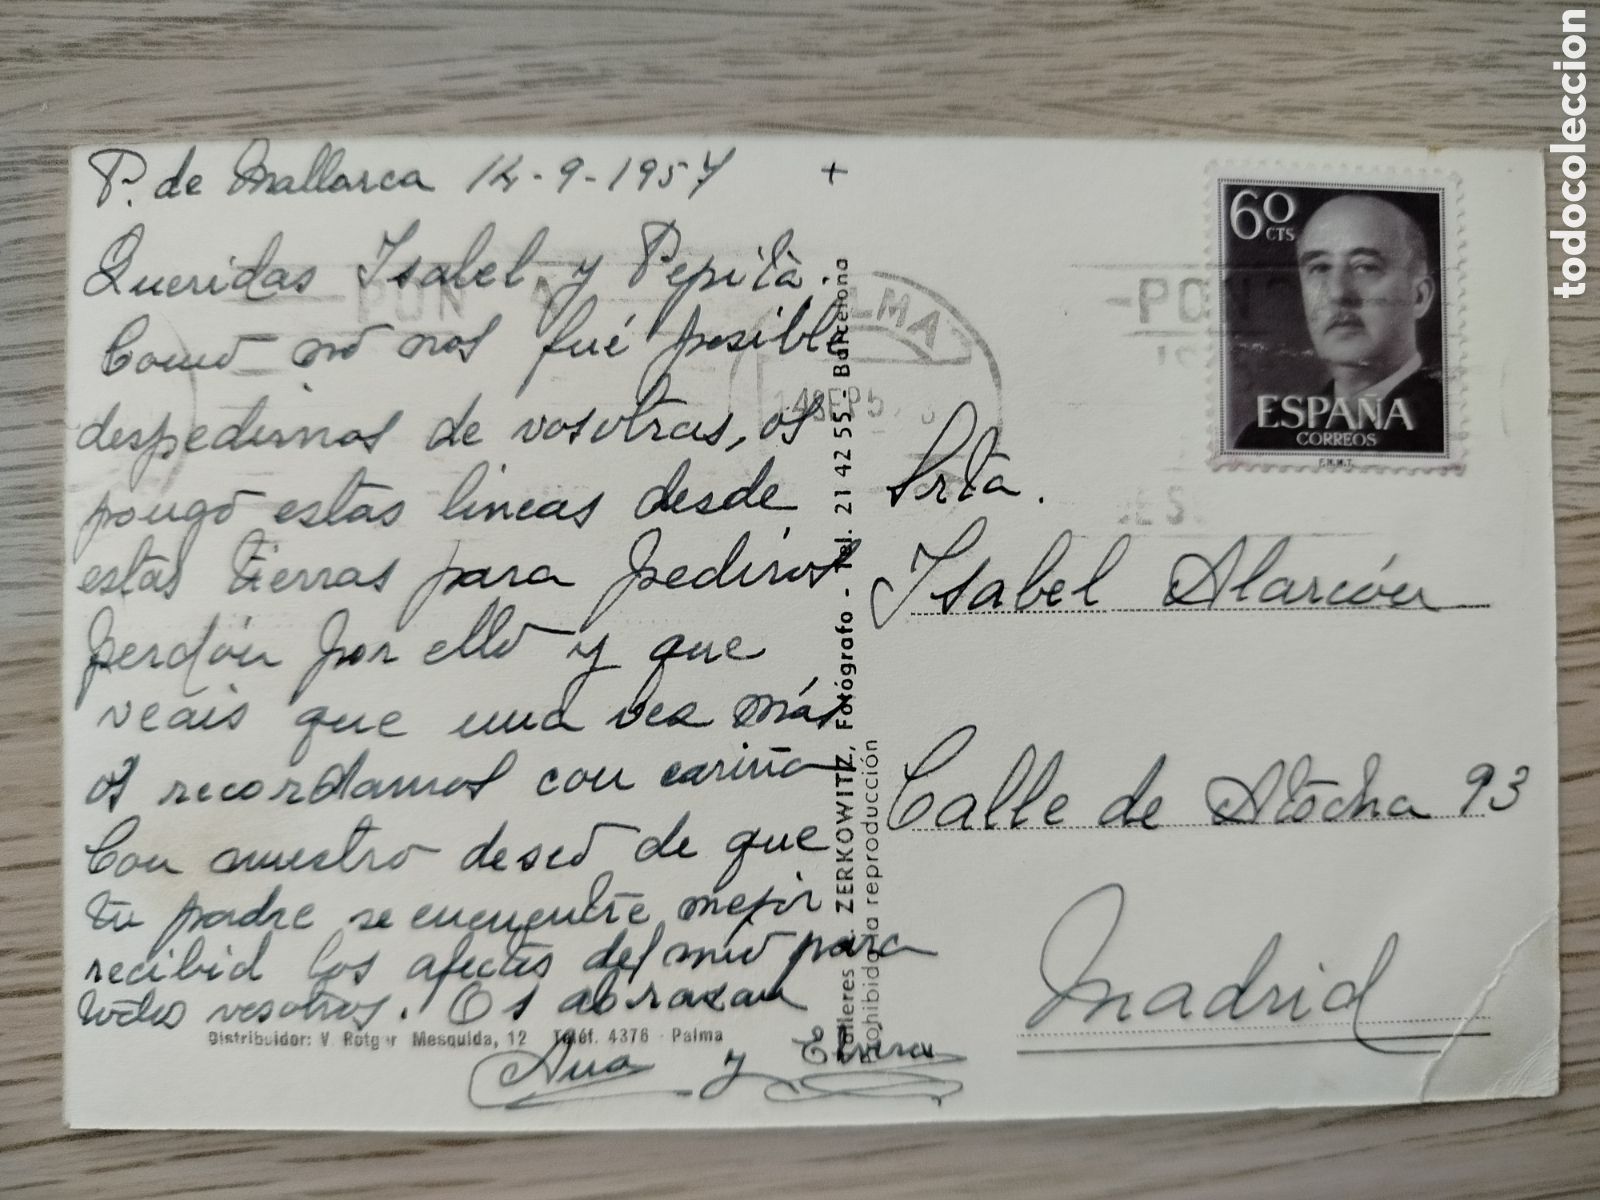 P. de Mallarca 14-9-1957
+
Queridas Isabel y Pepita.
Como no nos fué posible
despedirnos de vosotras, os
pongo estas lineas desde
estas tierras para pediros
perdón por ello y que
veais que una vez más
os recordamos con cariño
Con nuestro deseo de que
tu padre se encuentre mejor
recibid los afectos del mio para
todos vosotros. Os abrazan
Ana y Elvira
Distribuidor: V. Rotger Mesquida, 12 Teléf. 4376 - Palma
Talleres A. ZERKOWITZ, Fotógrafo - Tel. 21 42 55 - Barcelona
Prohibida la reproducción
60
CTS
ESPAÑA
CORREOS
F.N.M.T.
PALMA
14 SEP 57
-PON
-PON
Srta.
Isabel Alarcón
Calle de Atocha 93
Madrid
todocoleccion